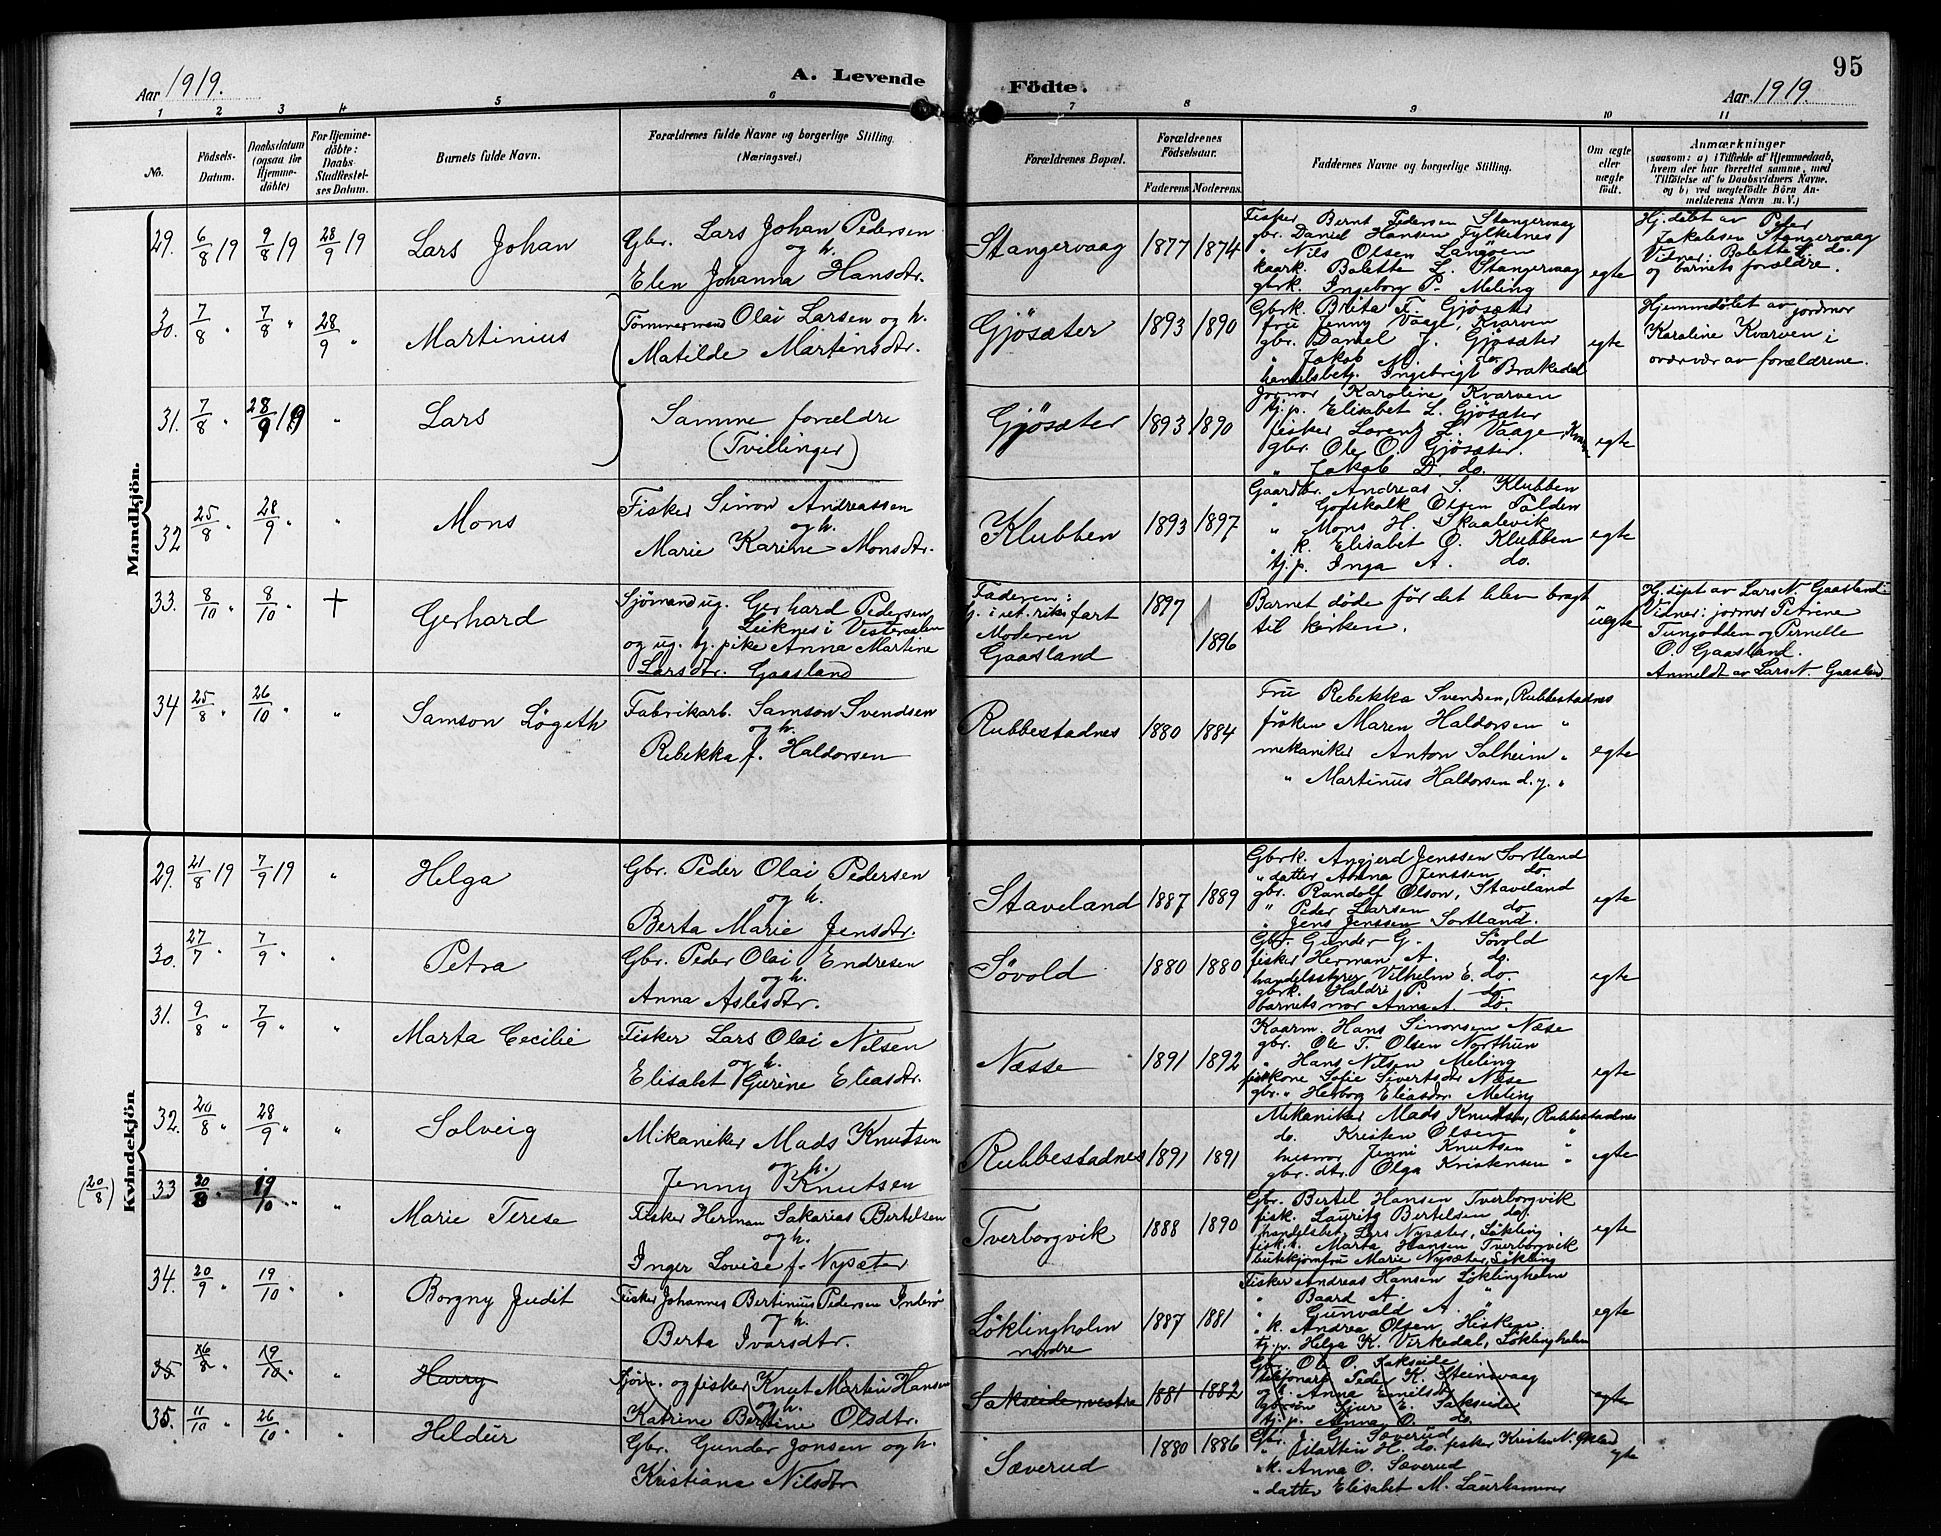 95
Aar 1919.
A. Levende Födte.
Aar 1919.
1 2 3 4 5 6 7 8 9 10 11
No.
Födsels-Datum.
Daabsdatum (ogsaa for Hjemmedöbte)
For Hjemmedöbte: Daabs-Stadfæstelses Datum.
Barnets fulde Navn.
Forældrenes fulde Navne og borgerlige Stilling. (Næringsvei.)
Forældrenes Bopæl.
Forældrenes Födselsaar.
Faderens Moderens
Faddernes Navne og borgerlige Stilling.
Om ægte eller uægte födt.
Anmærkninger
(saasom: a) i Tilfælde af Hjemmedaab,
hvem der har forrettet samme, med
Tilföielse af to Daabsvidners Navne,
og b) ved uægtefödte Börn An-
melderens Navn m. V.)
Mandkjön.
29. 6/8 19 9/8 19 28/9 19 Lars Johan
Gbr. Lars Johan Pedersen
og h.
Elen Johanna Hansdtr.
Stangervaag 1877 1874
Fisker Bernt Pedersen Stangervaag
gbr. Daniel Hansen Fylkesnes
" Nils Olsen Langöen
kaark. Bolette L. Stangervaag
gbrk. Ingeborg P. Meling
egte
Hj. döbt av Peter
Jakobsen Stangervaag
Vidner: Bolette L. do.
og barnets forældre.
30. 7/8 " 7/8 " 28/9 " Martinius
Tömmermand Olai Larsen og h.
Matilde Martensdtr.
Gjösæter 1893 1890
Gbrk. Brita F. Gjösæter
fru Jenny Vaage, Kvarven
gbr. Daniel J. Gjösæter
" Jakob M. do
handelsbetj. Ingebrigt Brakedal
egte
Hjemmedöbt av jordmor
Karoline Kvarven i
overvær av forældrene.
31. 7/8 " 28/9 19 " Lars
Samme forældre
(Tvillinger)
Gjösæter 1893 1890
Jormor Karoline Kvarven
tj.p. Elisabet L. Gjösæter
fisker Lorentz L. Vaage,
gbr. Ole O. Gjösæter.
" Jakob D. do.
egte
32 25/8 " 28/9 " " Mons
Fisker Simon Andreassen
og h.
Marie Karine Monsdtr.
Klubben 1893 1897
Gaardbr. Andreas S. Klubben
" Godskalk Olsen Folden
" Mons H. Skaalevik
" k. Elisabet O. Klubben
tj.p. Inga A. do.
egte
33. 8/10 " 8/10 " + Gerhard
Sjömand ug. Gerhard Pedersen
Leiknes i Vesteraalen
og ug. tj. pike Anna Martine
Larsdtr. Gaasland
Faderen:
Moderen
Gaasland
1897
1896
Barnet döde för det blev bragt
til kirken.
uegte
Hj. döpt av Lars N. Gaasland.
Vidner: jormor Petrine
Tungodden og Pernelle
O. Gaasland.
Anmeldt av Lars N. Gaasland
34 25/8 " 26/10 " " Samson Lögeth
Fabrikarb. Samson Svendsen
og h.
Rebekka f. Haldorsen
Rubbestadnes 1880 1884
Fru Rebekka Svendsen, Rubbestadnes
fröken Maren Haldorsen "
mekaniker Anton Solheim "
" Martinus Haldorsen d.y. "
egte
Kvindekjön
29. 21/8 19 7/9 19 " Helga
Gbr. Peder Olai Pedersen
og h.
Berta Marie Jensdtr.
Staveland 1887 1889
Gbrk. Angjerd Jenssen Sortland
" datter Anna Jenssen do.
gbr. Randolf Olson, Staveland
" Peder Larsen do
" Jens Jenssen Sortland.
egte
30. 27/7 " 7/9 " " Petra
Gbr. Peder Olai Endresen
og h.
Anna Aslesdtr.
Sövold 1880 1880
Gbr. Gunder G. Sövold
fisker Herman A. do.
handelsstyrer Vilhelm E. do.
gbrk. Haldri P. do
barnets mor Anna A. do.
egte
31. 9/8 " 7/9 " " Marta Cecilie
Fisker Lars Olai Nilsen
og h.
Elisabet Gurine Eliasdtr.
Næsse 1891 1892
Kaarm. Hans Simonsen Næse
gbr. Ole T. Olsen Northun
" Hans Nilsen Meling
fiskkone Sofie Sivertsdtr Næse
gbr. " Herborg Eliasdtr Meling
egte
32. 20/8 " 28/9 " " Solveig
Mikaniker Mads Knudsen
og h.
Jenny Knutsen
Rubbestadnes 1891 1891
Mekaniker Mads Knudsen, Rubbestadnes
do. Kristen Olsen "
husmor Jenni Knutsen "
gbr. dtr. Olga Kristensen "
egte
(20/8) 33 20/8 " 19/10 " " Marie Terese
Fisker Herman Sakarias Bertelsen
og h.
Inger Lovise f. Nysæter
Tverborgvik 1888 1890
Gbr. Bertel Hansen Tverborgvik
fisk. Laurits Bertelsen do.
handelsbet. Lars Nysæter, Lökling
fisk.k. Marta Hansen Tverborgvik
butikkjomfru Marie Nysæter, Lökling
egte
34. 20/9 " 19/10 " " Borgny Judit
Fisker Johannes Bertinius Pedersen Inderö
og h.
Berta Ivarsdtr.
Löklingholm
nordre
1887 1881
Fisker Andreas Hansen Löklingholm
" Baard A. "
" Gunvald A. "
" k. Andrea Olsen, Hisken
tj.p. Helga K. Virkedal, Löklingholm
egte
35. 16/8 " 19/10 " " Harry
Sjöm. og fisker Knut Martin Hansen
og h.
Katrine Bertine Olsdtr.
Sakseide vestre 1881 1882
Gbr. Ole O. Sakseide
telefonarb. Peder K. Steinsvaag
og h. Anna Emilsdtr
gbrsön Sjur E. Sakseide
tj.p. Anna O. do.
egte
35. 11/10 " 26/10 " " Heldur
Gbr. Gunder Jonsen og h.
Kristiana Nilsdtr
Sæverud 1880 1886
Gbr. J. G. Sæverud
" Martin H. do. fisker Kristen N.
" k. Anna O. Sæverud
" datter Elisabet M. Laurhammer
egte